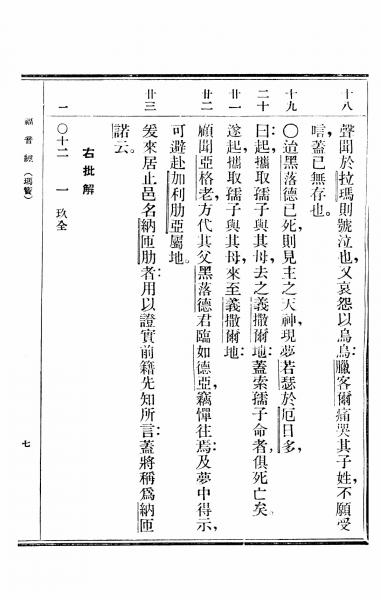 十八 聲聞於拉瑪則號泣也，又哀怨以烏烏：臘客爾痛哭其子姓，不願受
唁，蓋已無存也。
十九 〇迨黑落德已死，則見主之天神，現夢若瑟於厄日多，
二十 曰：起，攜取孺子與其母，去之義撒爾地：蓋索孺子命者，俱死亡矣。
廿一 遂起，攜取孺子與其母，來至義撒爾地：
廿二 顧聞亞格老方代其父黑落德君臨如德亞，竊憚往焉：及夢中得示，
可避赴加利肋亞屬地。
廿三 爰來居止邑名納匝肋者：用以證實前籍先知所言：蓋將稱爲納匝
諾云。
右批解
一 〇十二 一 玖全
福音經（瑪竇） 七